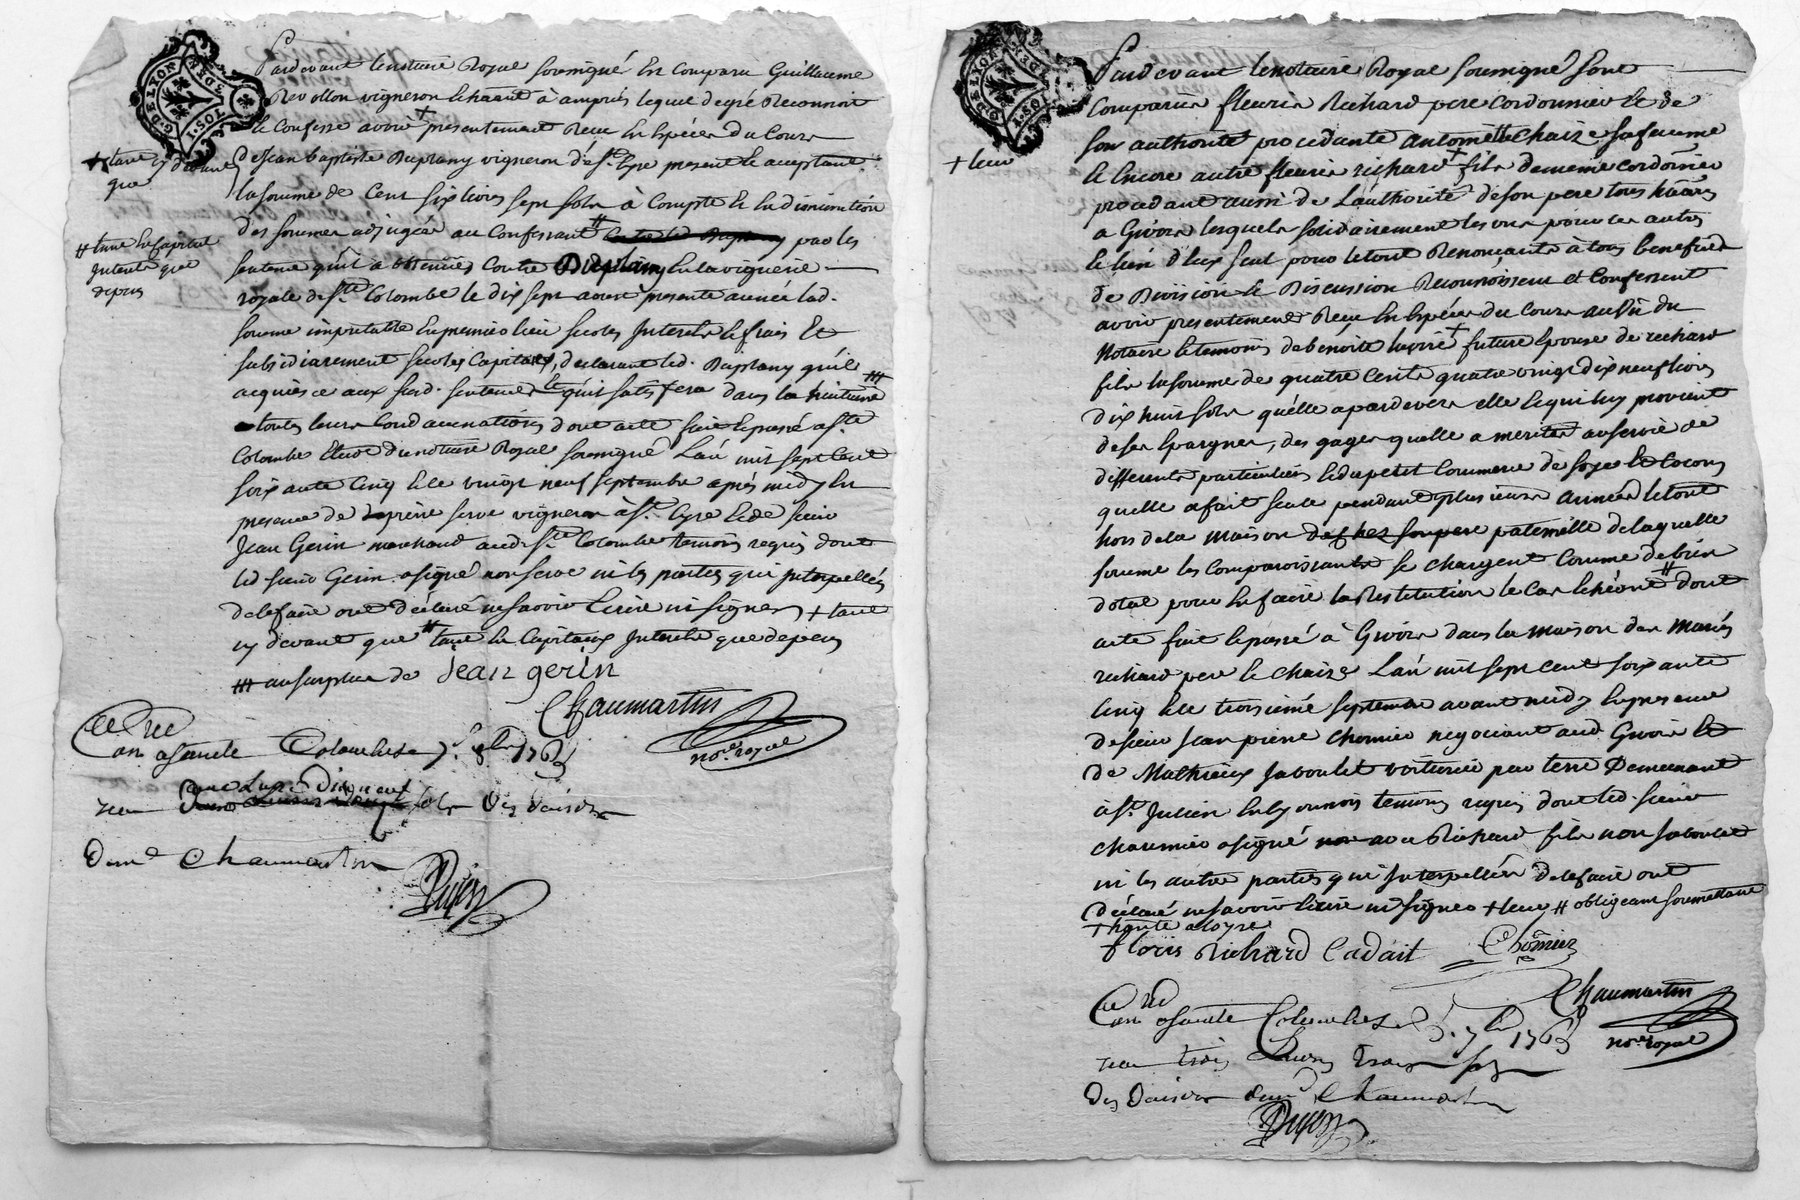 G. DE LYON
DEN.
1 SOL
Pardevant le notaire Royal soussigné En Comparu Guillaume
Revollon vigneron habitant à ampuis lequel degré Reconnoit
et Confesse avoir + présentement Reçu En Espèces du Cours
+ tant cy devant
que
de Jean baptiste Duplany vigneron de St. Cyre present et acceptant
la somme de Cent six livres sept sols à Compte Et En diminution
des sommes adjugées au Confessant # par les
# tant En Capital
Interets que
depuis
sentences qu'il a obtenües Contre Duplany En la viguerie
royale de Ste Colombe le dix sept aoust présente année lad.
somme imputable En premier lieu sur les Interets et frais Et
subsidiairement sur les Capitaux, declarant led. Duplany qu'il
acquiesce aux susd. sentences et qu'il satisfera dans la huitaine ###
toutes leurs Condamnations dont acte fait et passé a Ste
Colombe Etude du notaire Royal soussigné L'an mil sept Cent
soixante Cinq et le vingt neuf septembre après midy En
presence de pierre serve vigneron à St. Cyre et de sieur
Jean Gerin marchand aud. Ste Colombe temoins requis dont
led sieur Gerin a signé non serve ni les parties qui Interpellées
de le faire ont déclaré ne savoir Ecrire ni signer + tant
cy devant que # tant En Capitaux Interets que depens
### au surplus de Jean gerin
Chaumartin
nore. royal
a sainte Colombe 1765
sols
Chaumartin
G. DE LYON
DEN.
1 SOL
Pardevant le notaire Royal soussigné sont
Comparus fleurie Richard pere Cordonnier et de
son authorité procedante antoinette Chaize sa femme
+ leur
et Encore autre fleurie richard + fils de meme cordonnier
procedant aussi de L'authorité de son pere tous habitants
a Givors lesquels solidairement les uns pour les autres
et l'un d'Eux seul pour le tout Renonçants à tous benefices
de Division et Discussion Reconnoissent et Confessent
avoir presentement Reçu En Espèces du Cours au vû du
Notaire et temoins de benoite + future Epouse de richard
fils la somme de quatre Cents quatre vingt dix neuf livres
dix huit sols qu'elle a pardevers elle et qui luy provient
de ses Epargnes, des gages qu'elle a merités au service de
differents particuliers et du petit Commerce de soye et Cocons
qu'elle a fait seule pendant plusieurs années le tout
hors de la maison paternelle de laquelle
somme les Comparoissants se chargent Comme de bien
dotal pour En faire la Restitution le Cas Echéant # dont
acte fait et passé à Givors dans la maison des Mariés
richard pere et Chaize L'an mil sept Cent soixante
Cinq et le troisième septembre avant midy En presence
de sieur Jean pierre Chomier negociant aud. Givors et
de Mathieux Jaboulet voiturier par terre Demeurant
à St Julien En Lyonnois temoins requis dont led. sieur
Chaumier a signé avec Richard fils non Jaboulet
ni les autres parties qui Interpellées de le faire ont
Declaré ne savoir Ecrire ni signer + leur # obligeant soumettant
floris Richard Cadait Chomier
Chaumartin
nore. royal
a sainte Colombe 1765
trois Livres
Chaumartin